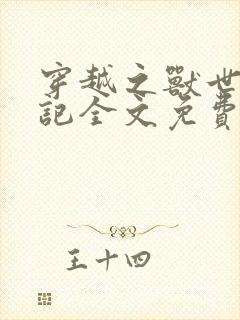 穿越之獸世
記全文免費
王十四